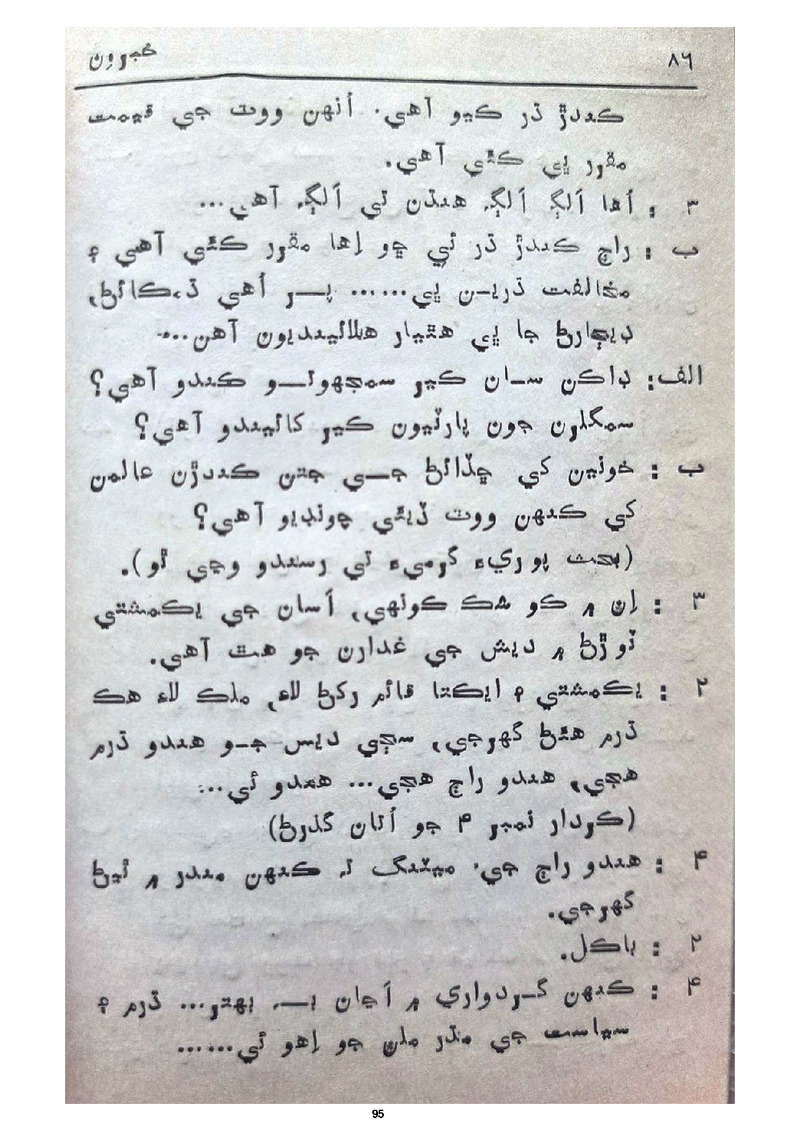 ۸۶ ڪجهه وِن
ڪندڙ ڌر ڪيو آهي. اُنهن ووٽ جي قيمت
مقرر پي ڪئي آهي.
۳ : اُها اَلڳ اَلڳ هنڌن تي اَلڳ آهي...
ب : راڄ ڪندڙ ڌر ئي جو اِها مقرر ڪئي آهي ۽
مخالفت ڌرين پي...... پر اُهي ڌمڪائڻ،
ڊيڄارڻ جا پي هٿيار هلائيندیون آهن...
الف: ڊاڪن سان ڪير سمجهوتو ڪندو آهي؟
سمگلرن جون پارٽيون ڪير کائيندو آهي؟
ب : خونين کي ڇڏائڻ جي جتن ڪندڙن عالمن
کي ڪنهن ووٽ ڏيئي چونڊيو آهي؟
(بحث پوريءَ گرميءَ تي رسندو وڃي ٿو).
۳ : اِن ۾ ڪو شڪ ڪونهي، اَسان جي يڪمشتي
ٽوڙڻ ۾ ديش جي غدارن جو هٿ آهي.
۲ : يڪمشتي ۽ ايڪتا قائم رکڻ لاءِ، ملڪ لاءِ هڪ
ڌرم هئڻ گهرجي، سڄي ديس جو هندو ڌرم
هجي، هندو راڄ هجي... هندو ئي...
(ڪردار نمبر ۴ جو اُتان گذرڻ)
۴ : هندو راڄ جي. ميٽنگ ته ڪنهن مندر ۾ ٿيڻ
گهرجي.
۲ : باڪل.
۴ : ڪنهن گردواري ۾ اَڃان به بهتر... ڌرم ۽
سياست جي منڌر ملن جو اِهو ئي......
95